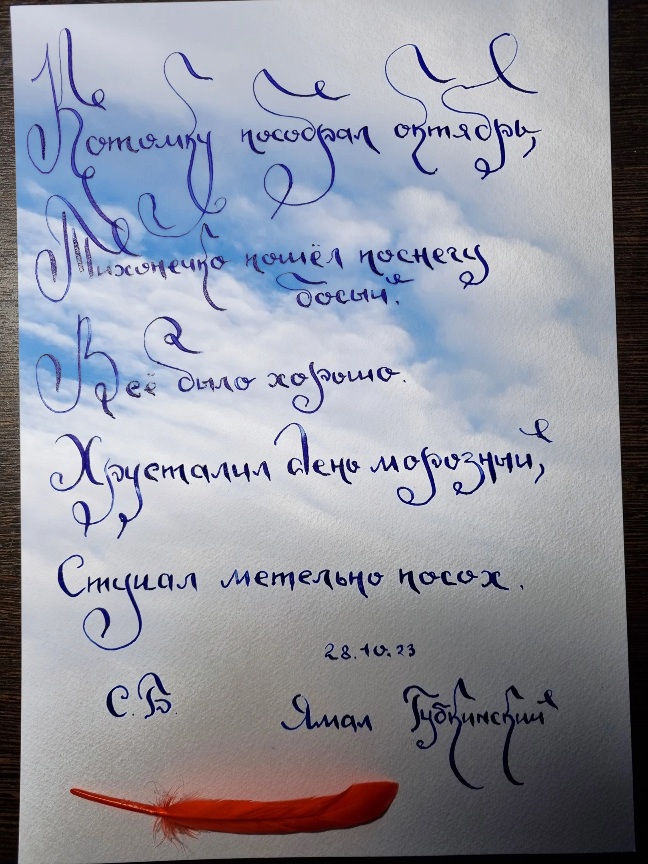 Котомку пособрал октябрь,
Тихонечко пошёл поснегу
босый.
Всё было хорошо.
Хрусталил день морозный,
Стучал метельно посох.
28.10.23
С.Б.
Ямал Губкинский